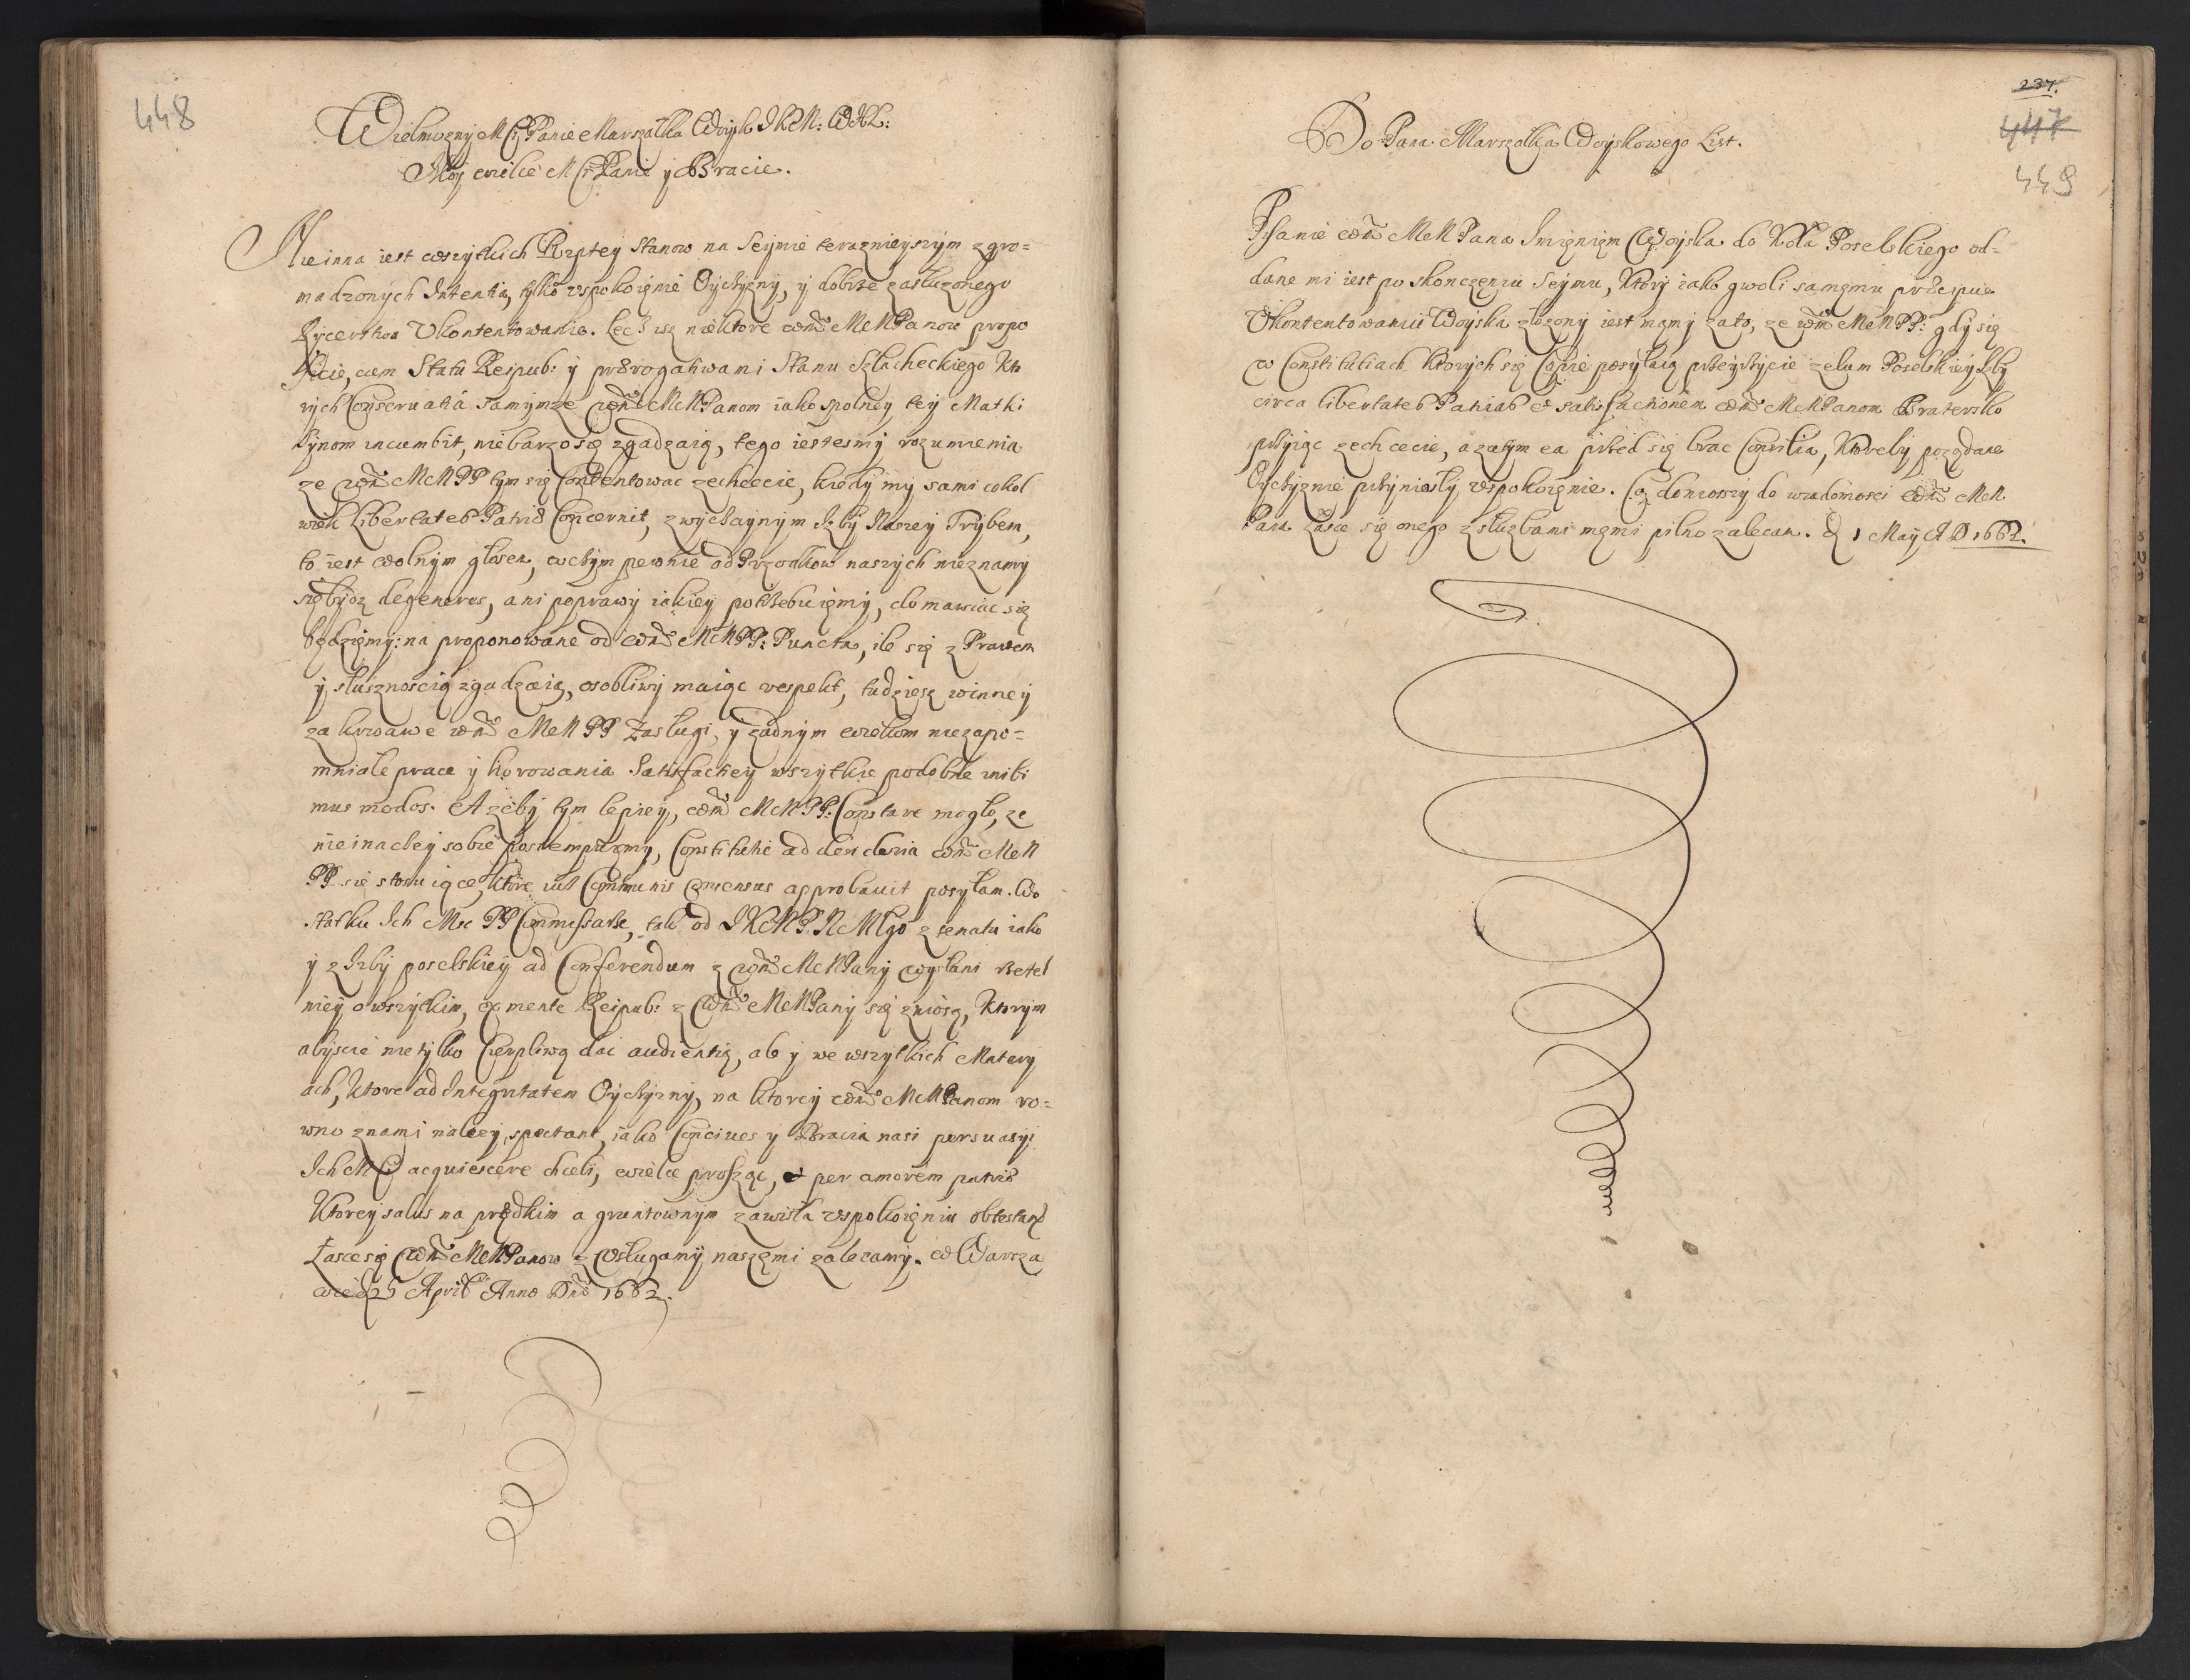 448
Wielmozny Mći Panie Marszałku Woysk IKM: WXL:
Moy wielce Mći Panie y Bracie.
Nie inna iest wszytkich Rzptey Stanow na Seymie teraznieyszym zgro=
madzonych Intentia, tylko vspokoięnie Oyczyzny, y dobrze zasłuzonego
Rycerstwa Vkontentowanie. Lecz isz niektore WMć MMPanow propo
zycie, cum Statu Reipub: y prærogatiwami Stanu Szlacheckiego kto
rych Conseruatia samymze WMć MMPanom iako spolney tey Matki
Synom incumbit, niebarzo się zgadzaią, tego iestesmy rozumienia
ze WMć MMPP tym się Contentowac zechcecie, kiedy my sami cokol
wiek Libertates Patriæ Concernit, zwyczaynym Izby Naszey Trybem,
to iest wolnym głosem, w czym pewnie od Przodkow naszych nieznamy
się bydz degeneres, ani poprawy iakiey potrzebuięmy, domawiac się
będzięmy: na proponowane od WMć MMPP: Puncta, ile się z Prawem
y słusznoscią zgadzaią, osobliwy maiąc respekt, tudziesz winney
za krwawe WMć MMPP Zasługi, y zadnym wiekom niezapo=
mniałe prace y horowania Satisfactiey wszytkie podobne inibi
mus modos. A zeby tym lepiey, WMć MMPP: Constare mogło, ze
nieinaczey sobie postempuięmy, Constitutie ad desideria WMć MM
PP się stosuiące, ktore iusz Communis Consensus approbauit posyłam. Wo
statku Ich Mć PP Commissarze, tak od IKMPNMłgo z senatu iako
y z Izby poselskiey ad Conferendum z WMć MMPany wysłani rzetel
niey o wszytkim, ex mente Reipub: z WMć MMPany się zniosą, ktorym
abyscie nie tylko Cierpliwą dac audientią, ale y we wszytkich Matery
ach, ktore ad Integritatem Oyczyzny, na ktorey WMć MMPanom ro=
wno znami nalezy, spectant, iako Conciues y Bracia nasi persuasyi
Ich Mći acquiescere chcieli, wielce prosząc, et per amorem patriæ
Ktorey salus na prędkim a gruntownym zawisła vspokoięniu obtestand
Łasce się WMć MMPanow z Vsługamy naszęmi zalecamy. W Warsza
wie d 25 April Anno Dni 1662.
237.
447
449
Do Pana Marszałka Woyskowego List.
Pisanie WMć MMPana Imięnięm Woyska do Koła Poselskiego od=
dane mi iest po skonczęniu Seymu, Ktory iako gwoli samęmu præcipue
Vkontentowaniu Woyska złozony iest mamy zato, ze WMć MMPP: gdy się
w Constitutiach ktorych się Copie posyłaią przeyrzycie zelum Poselskiey Izby
circa libertates Patrias et satisfactionem WMć MMPanom Bratersko
przyiąc zechcecie, a zatym ea przed się brac Consilia, Ktoreby poządane
Oyczyznie przyniosły vspokoięnie. Co doniosszy do wiadomosci WMć MM
Pana Łasce się onego z słuzbami męmi pilno zalecam. d 1 May A D 1662.